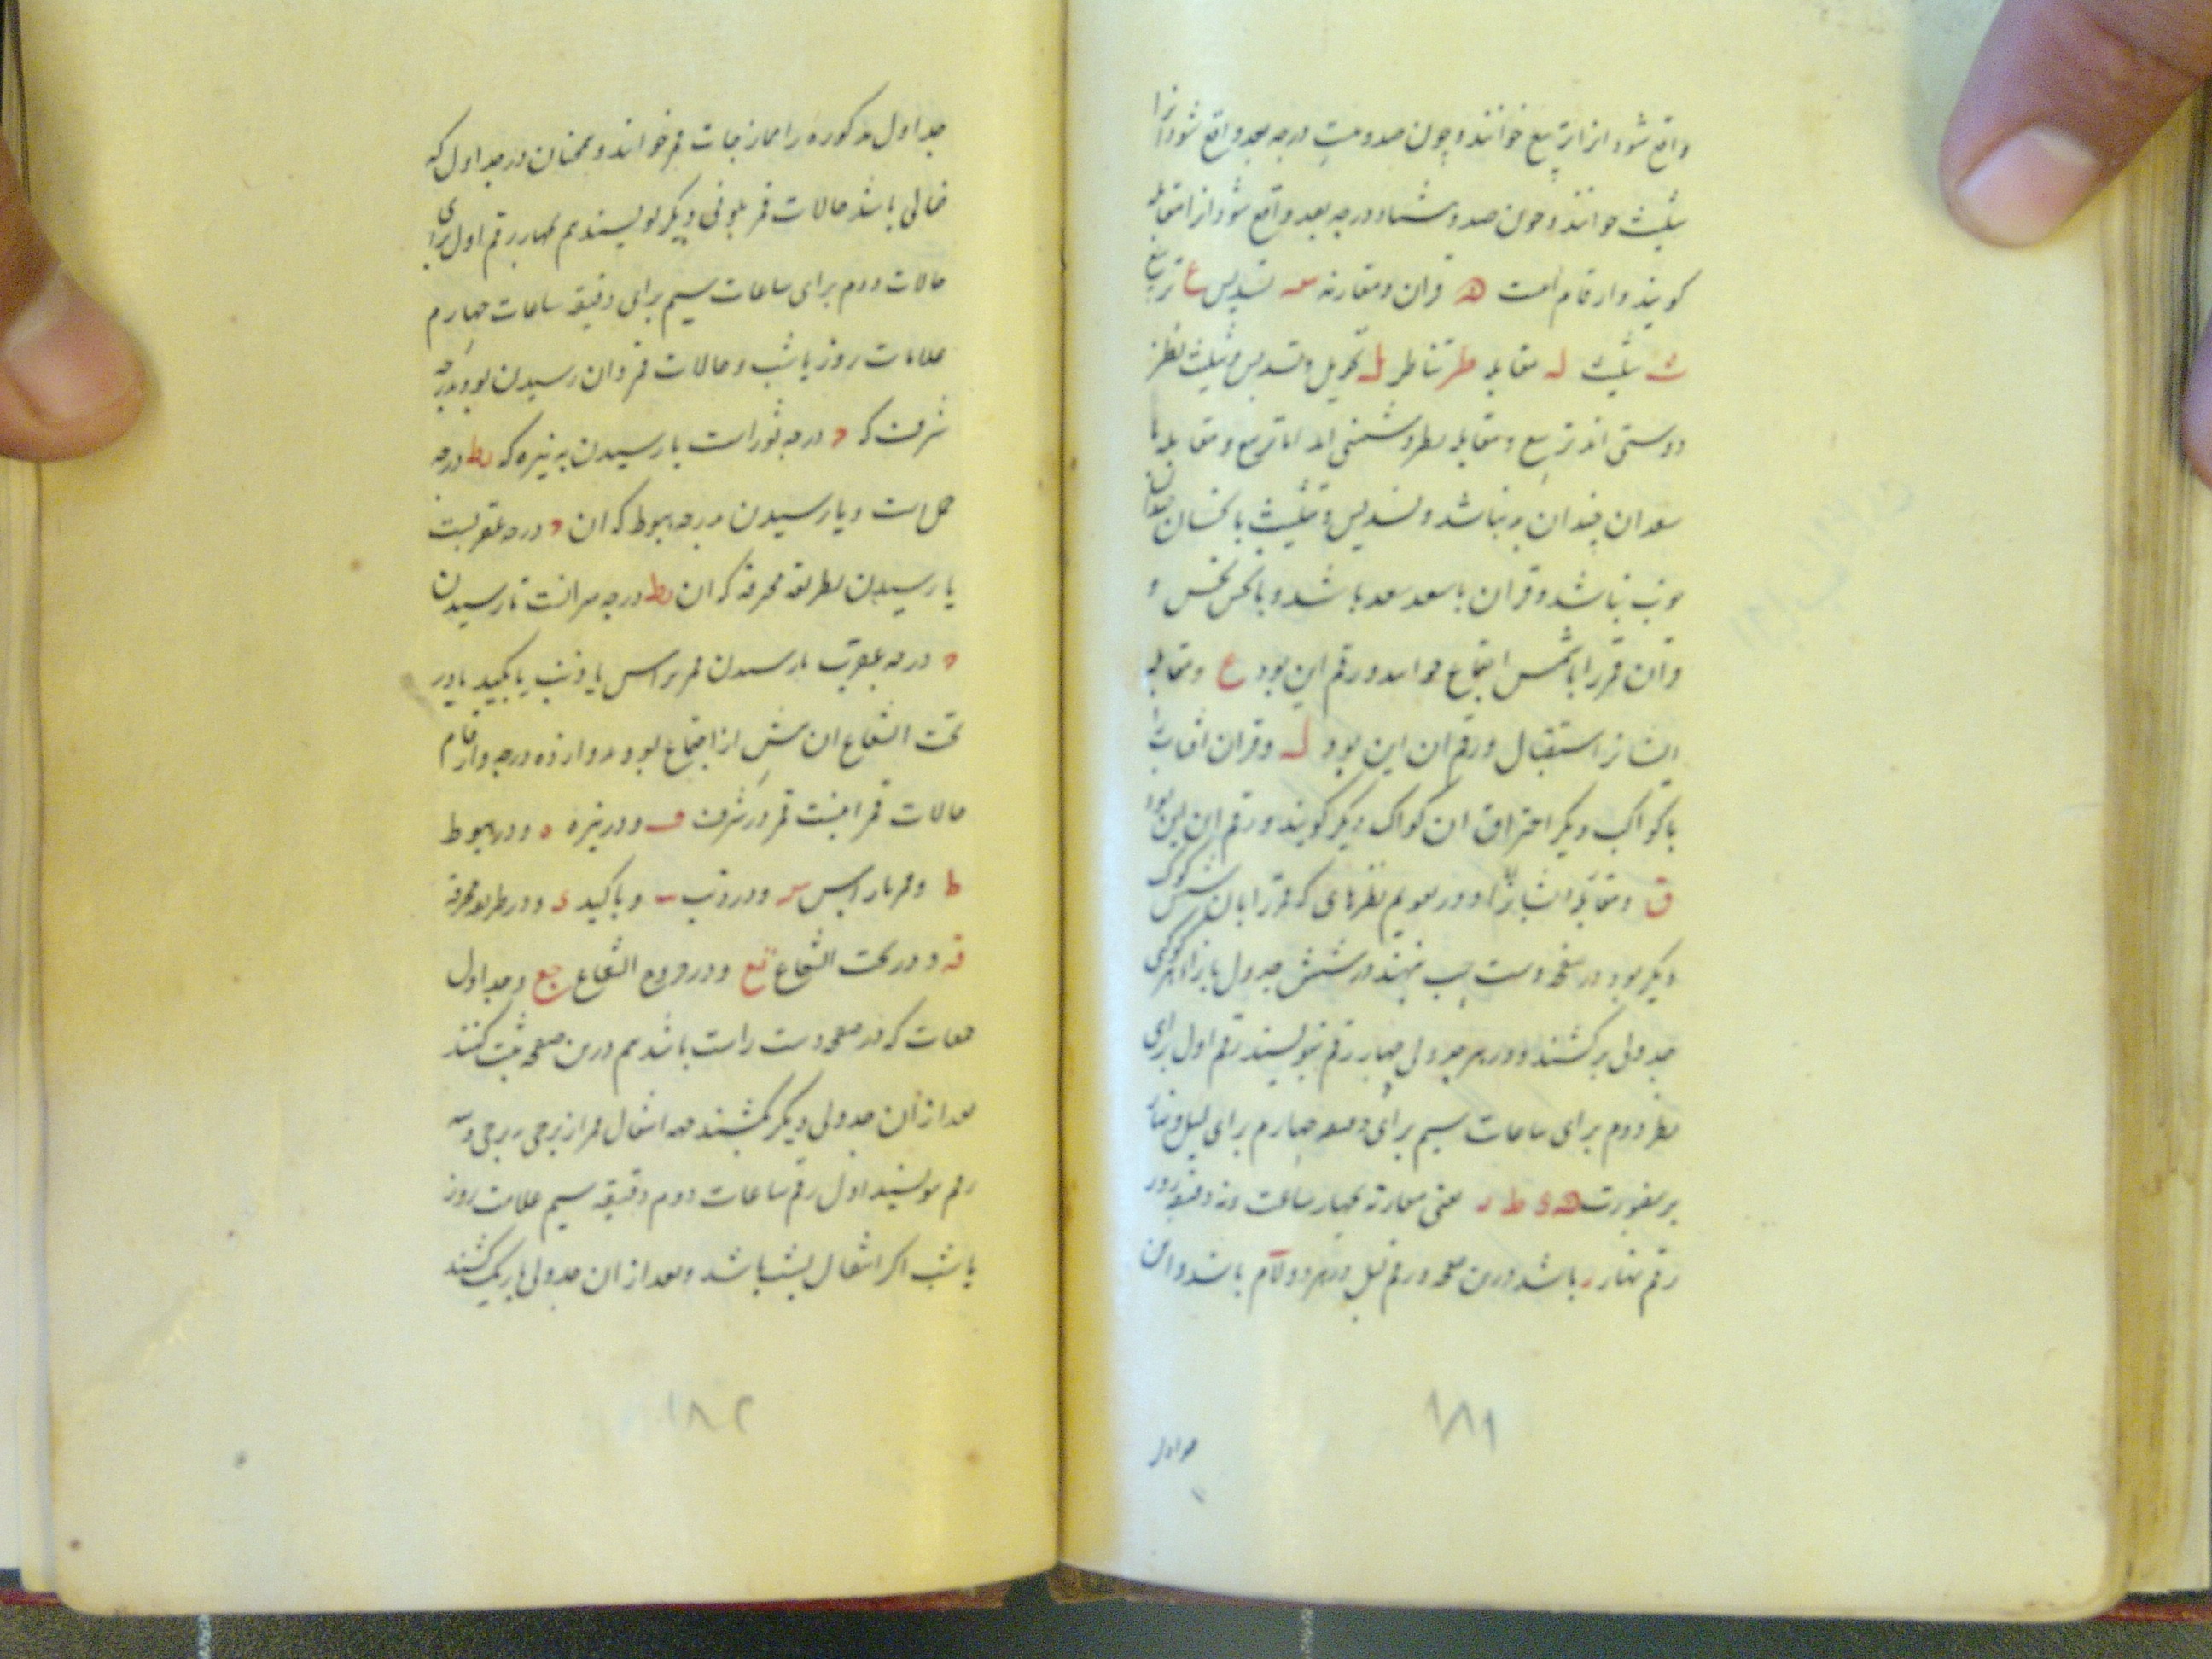 واقع شود انرا تربیع خوانند و چون صد و بیست درجه بعد واقع شود انرا
تثلیث خوانند و چون صد و هشتاد درجه بعد واقع شود انرا مقابله
کویند و ارقام اینست ه قران و مقارنه س تسدیس ع تربیع
ث تثلیث له مقابله طر تناظر ل تحویل و تسدیس و تثلیث نظر
دوستی اند تربیع و مقابله نظر دشمنی اند اما تربیع و مقابله با
سعدان چندان بد نباشد و تسدیس و تثلیث با نحسان چندان
خوب نباشد و قران با سعد سعد باشد و با نحس نحس و
قران قمر را با شمس اجتماع خوانند و رقم این بود ع و مقابله
ایشانرا استقبال و رقم ان این بود ل و قران افتاب
با کواکب دیکر احتراق ان کواکب دیکر کویند و رقم ان این بود
ق و مقابله ایشانرا و در تقویم نظرهای که قمر را با شش کوکب
دیکر بود در صفحه دست چپ نهند در شش جدول بازاء هر کوکبی
جدولی برکشند و در هر جدولی چهار رقم بنویسند رقم اول برای
نظر دوم برای ساعات سیم برای دقیقه چهارم برای لیل و نهار
برینصورت ه د ط ر یعنی مقارنه بچهار ساعت و نه دقیقه روز
رقم نهار ر باشد درین صفحه و رقم لیل در هر دو لام باشد و این
جداول
۱۸۱
جداول مذکوره را ممازجات قمر خوانند و همچنان در جداول که
خالی باشد حالات قمر بلونی دیکر نویسند هم بچهار رقم اول برای
حالات دوم برای ساعات سیم برای دقیقه ساعات چهارم
علامات روز یا شب و حالات قمر و ان رسیدن بود بدرجه
شرف که و درجه ثور است یا رسیدن به نیره که بط درجه
حمل است و یا رسیدن بدرجه هبوط که ان و درجه عقربست
یا رسیدن بطریقه محرقه که ان بط درجه میزانست تا رسیدن
و درجه عقرب یا رسیدن قمر براس یا ذنب یا بکید یا در
تحت الشعاع ان پیش از اجتماع بود بدوازده درجه و ارقام
حالات قمر اینست قمر در شرف ف و در نیره ه و در هبوط
ط و قمر با راس س و در ذنب ب و با کید ی و در طریقه محرقه
قه و در تحت الشعاع تع و در خروج الشعاع جع و جداول
که در صفحه دست راست باشد هم درین صفحه ثبت کنند
بعد از ان جدولی دیکر بکشند جهه انتقال قمر از برجی ببرجی و سه
رقم نویسند اول رقم ساعات دوم دقیقه سیم علامت روز
یا شب اکر انتقال بشب باشد و بعد از ان جدولی باریک کشند
۱۸۲